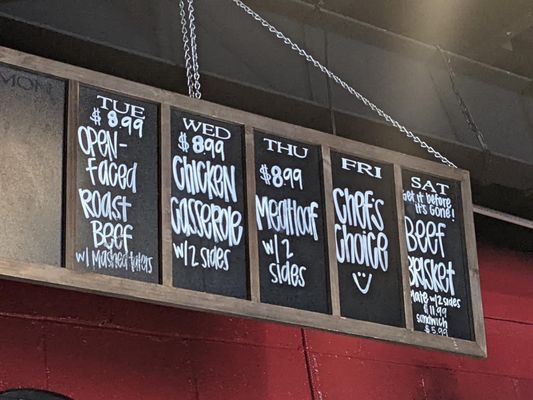 MON
TUE
$8.99
OPEN-
FACED
ROAST
BEEF
W/MASHED TATERS
WED
$8.99
CHICKEN
CASSEROLE
W/2 SIDES
THU
$8.99
MEATLOAF
W/2
SIDES
FRI
CHEF'S
CHOICE
SAT
GET it BEFORE
it's GONE!
BEEF
BRISKET
PLATE W/2 SIDES
$11.99
SANDWICH
$5.99